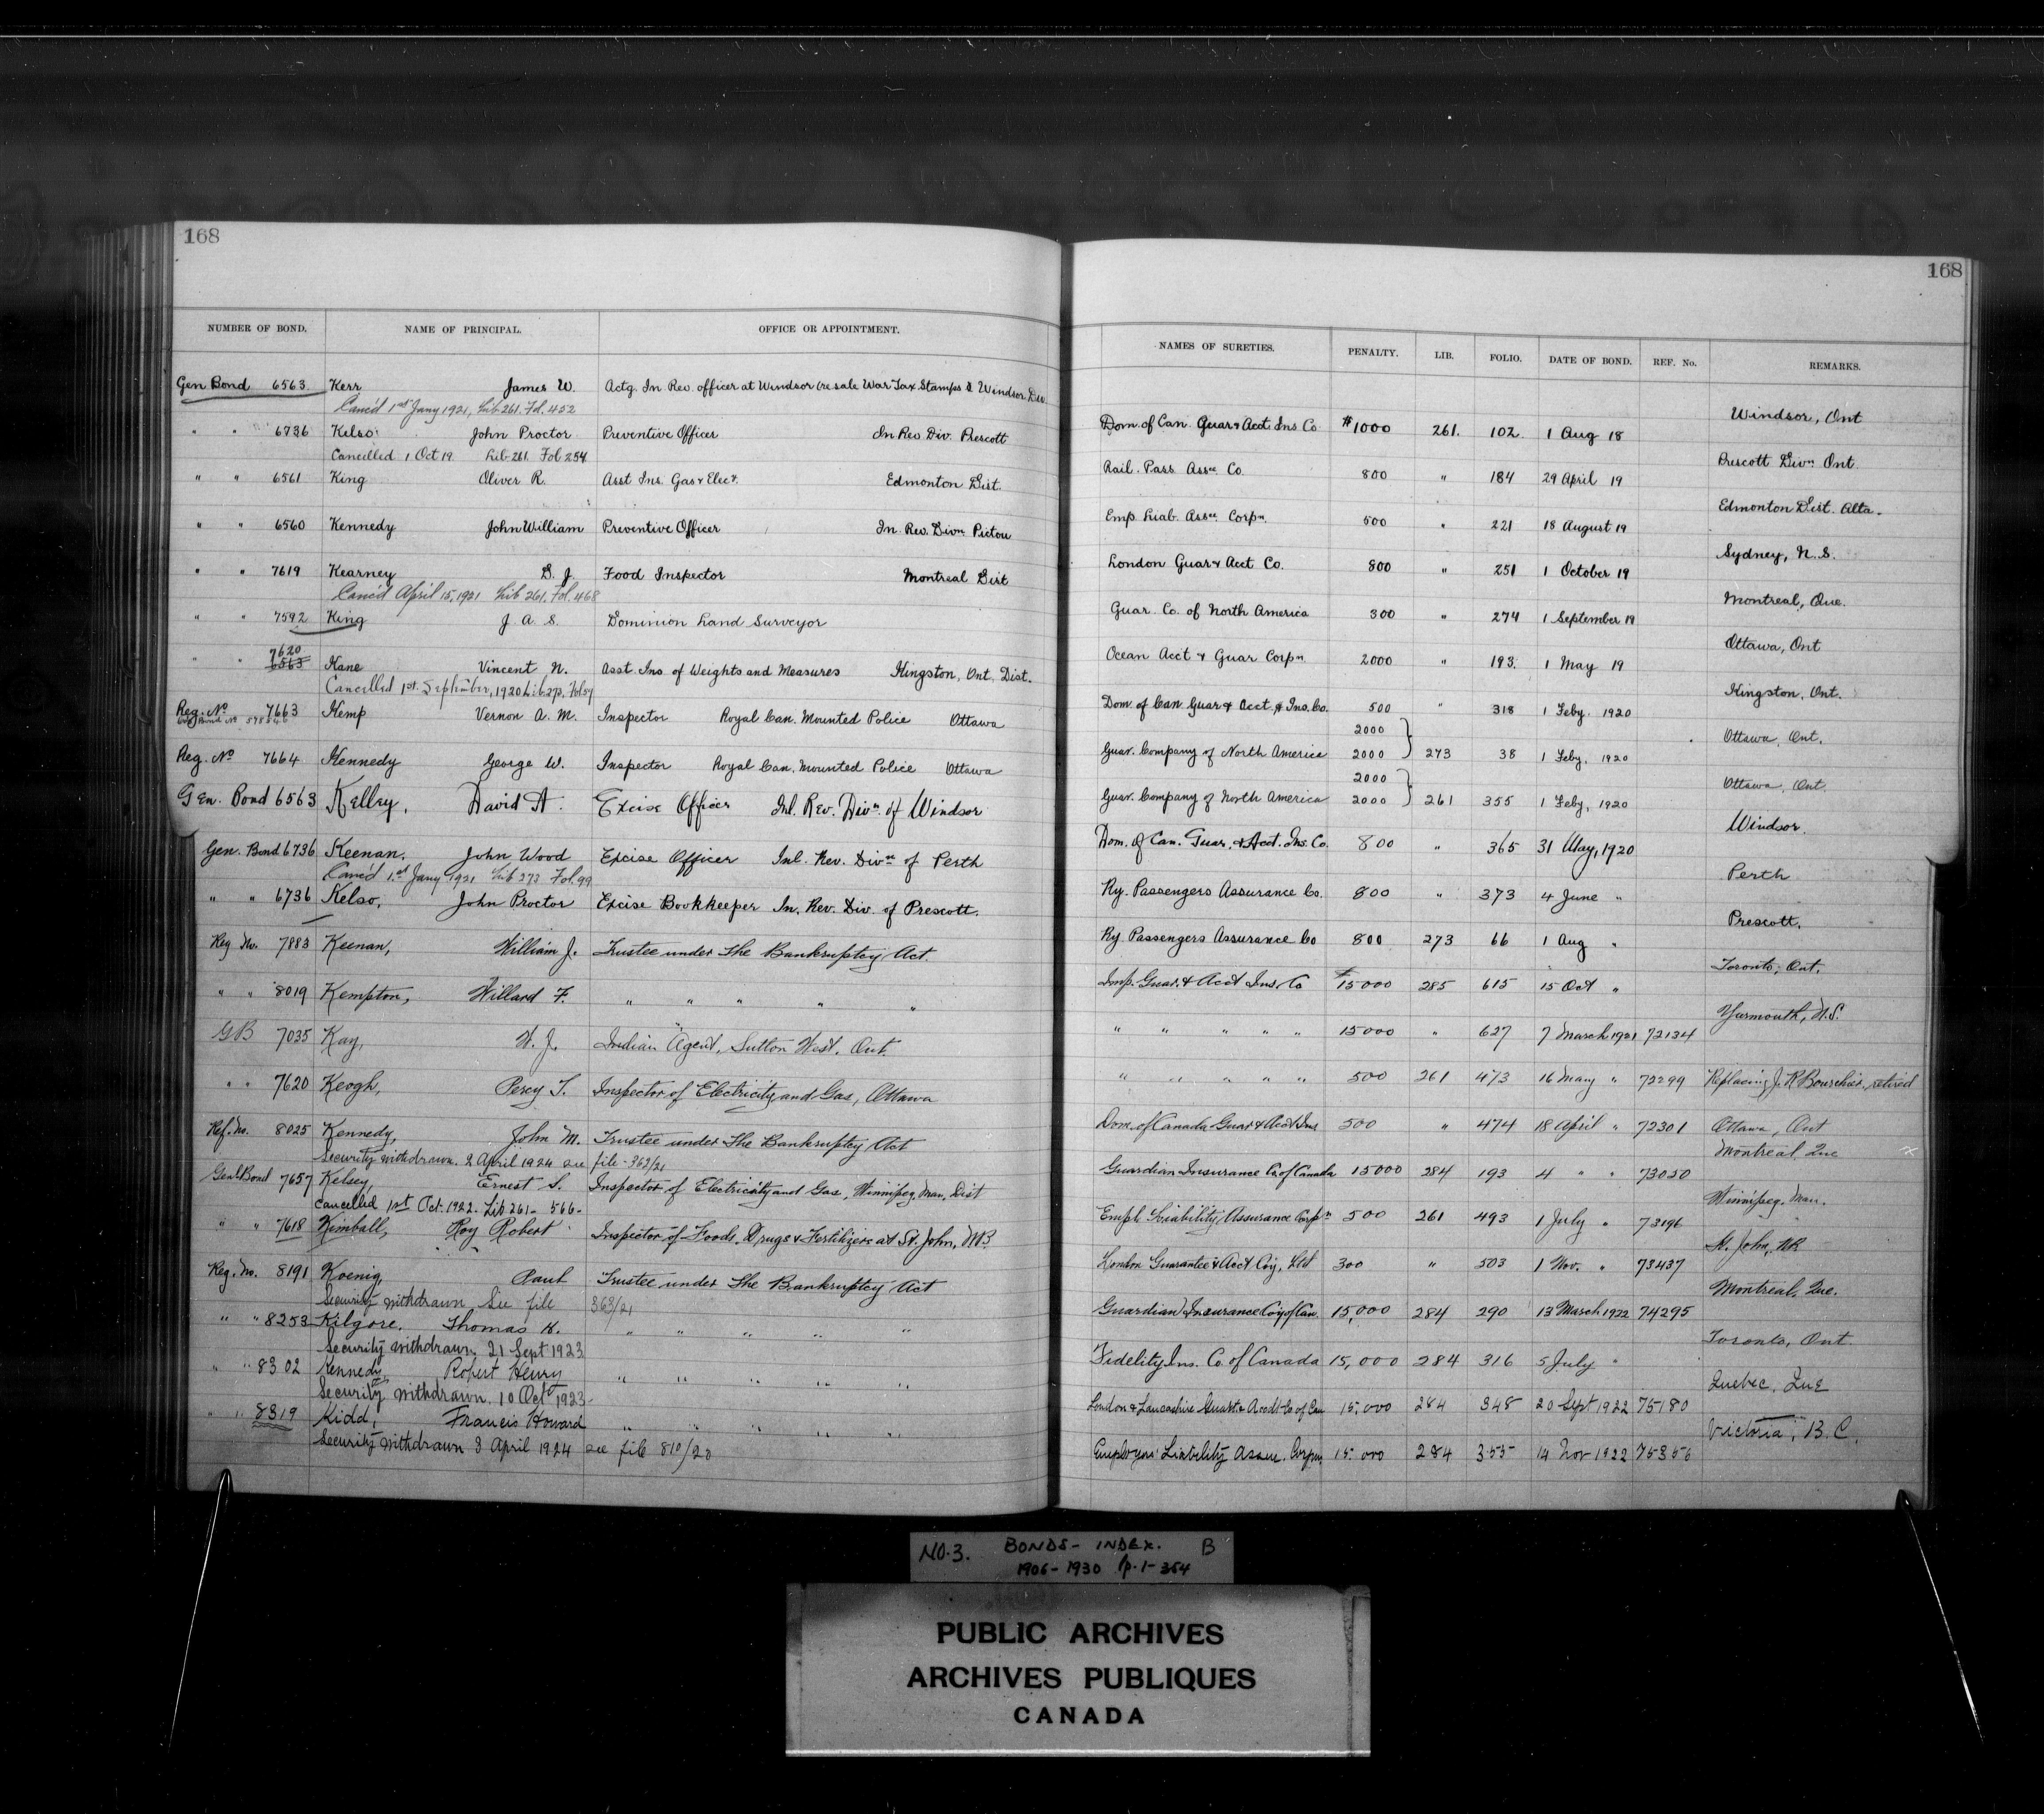 168
NUMBER OF BOND. NAME OF PRINCIPAL. OFFICE OR APPOINTMENT.
Gen Bond 6563 Kerr James W. Actg. In Rev. officer at Windsor (re sale War Tax Stamps & Windsor Div.
Canc'd 1st Jany 1921, Lib 261. Fol. 452
" " 6736 Kelso John Proctor Preventive Officer In Rev. Div. Prescott
Cancelled 1 Oct 19 Lib 261. Fol 254
" " 6561 King Oliver R. Asst Ins. Gas & Elect. Edmonton Dist.
" " 6560 Kennedy John William Preventive Officer In. Rev. Divn Pictou
" " 7619 Kearney D. J. Food Inspector Montreal Dist
Canc'd April 15, 1921 Lib 261, Fol. 468
" " 7592 King J. A. S. Dominion Land Surveyor
7620
" " 6563 Kane Vincent N. Asst Ins of Weights and Measures Kingston, Ont. Dist.
Cancelled 1st September, 1920 Lib 273, Fol 54
Reg. No 7663 Kemp Vernon A. M. Inspector Royal Can. Mounted Police Ottawa
Reg. No 7664 Kennedy George W. Inspector Royal Can. Mounted Police Ottawa
Gen. Bond 6563 Kelley, David A. Excise Officer Inl. Rev. Divn. of Windsor
Gen. Bond 6736 Keenan, John Wood Excise Officer Inl. Rev. Divn of Perth
Canc'd 1st Jany 1921 Lib 273 Fol. 99
" " 6736 Kelso, John Proctor Excise Bookkeeper In. Rev. Div. of Prescott.
Reg. No. 7883 Keenan, William J. Trustee under the Bankruptcy Act
" " 8019 Kempton, Willard F. " " " " "
GB 7035 Kay, W. J. Indian Agent, Sutton West, Ont.
" " 7620 Keogh, Percy T. Inspector of Electricity and Gas, Ottawa
Ref. No. 8025 Kennedy, John M. Trustee under the Bankruptcy Act
Security withdrawn. 2 April 1924 see file - 363/21
Genl Bond 7657 Kelsey, Ernest S. Inspector of Electricity and Gas, Winnipeg, Man, Dist
Cancelled 1st Oct. 1922. Lib 261 - 566 -
" " 7618 Kimball, Roy Robert Inspector of Foods, Drugs & Fertilizers at St. John, N.B.
Reg. No. 8191 Koenig, Paul Trustee under the Bankruptcy Act
Security withdrawn See file 363/21
" " 8253 Kilgore. Thomas H. " " " " "
Security withdrawn 21 Sept 1923
" " 8302 Kennedy, Robert Henry " " " " "
Security withdrawn. 10 Oct 1923 -
" " 8319 Kidd, Francis Howard " " " " "
Security withdrawn 3 April 1924 see file 810/20
168
NAMES OF SURETIES. PENALTY. LIB. FOLIO. DATE OF BOND. REF. No. REMARKS.
Dom. of Can. Guar & Acct. Ins Co $1000 261. 102. 1 Aug 18 Windsor, Ont
Rail. Pass Assce. Co. 800 " 184 29 April 19 Prescott Divn Ont.
Emp. Liab. Assce. Corpn. 500 " 221 18 August 19 Edmonton Dist. Alta.
London Guar & Acct Co. 800 " 251 1 October 19 Sydney, N.S.
Guar. Co. of North America 300 " 274 1 September 19 Montreal, Que.
Ocean Acct & Guar Corpn 2000 " 193. 1 May 19 Ottawa, Ont
Dom. of Can. Guar & Acct. & Ins. Co. 500 " 318 1 Feby. 1920 Kingston, Ont.
2000
Guar. Company of North America 2000 } 273 38 1 Feby. 1920 Ottawa, Ont.
2000
Guar. Company of North America 2000 } 261 355 1 Feby, 1920 Ottawa, Ont.
Dom. of Can. Guar. & Acct. Ins. Co. 800 " 365 31 May, 1920 Windsor.
Ry. Passengers Assurance Co. 800 " 373 4 June " Perth
Ry. Passengers Assurance Co 800 273 66 1 Aug " Prescott.
Imp. Guar. & Acct Ins. Co $15000 285 615 15 Oct " Toronto, Ont.
" " " " " 15000 " 627 7 March 1921 72134 Yarmouth, N.S.
" " " " " 500 261 473 16 Many " 72299 Replacing J. R. Bourchier, retired
Dom. of Canada Guar & Acct Ins 500 " 474 18 April " 72301 Ottawa, Ont
Guardian Insurance Co. of Canada 15000 284 193 4 " " 73050 Montreal Que
Empl. Liability Assurance Corpn 500 261 493 1 July " 73196 Winnipeg. Man.
London Guarantee & Acct Coy, Ltd 300 " 503 1 Nov. " 73437 St. John, NB
Guardian Insurance Coy of Can. 15,000 284 290 13 March 1922 74295 Montreal, Que.
Fidelity Ins. Co. of Canada 15,000 284 316 5 July " Toronto, Ont
London & Lancashire Guart & Acdt Co. of Can 15,000 284 348 20 Sept 1922 75180 Quebec, Que
Employers' Liability Assce. Corpn. 15.000 284 355 14 Nov 1922 75356 Victoria, B.C.
NO. 3. BONDS - INDEX. B
1906 - 1930 p. 1 - 354
PUBLIC ARCHIVES
ARCHIVES PUBLIQUES
CANADA